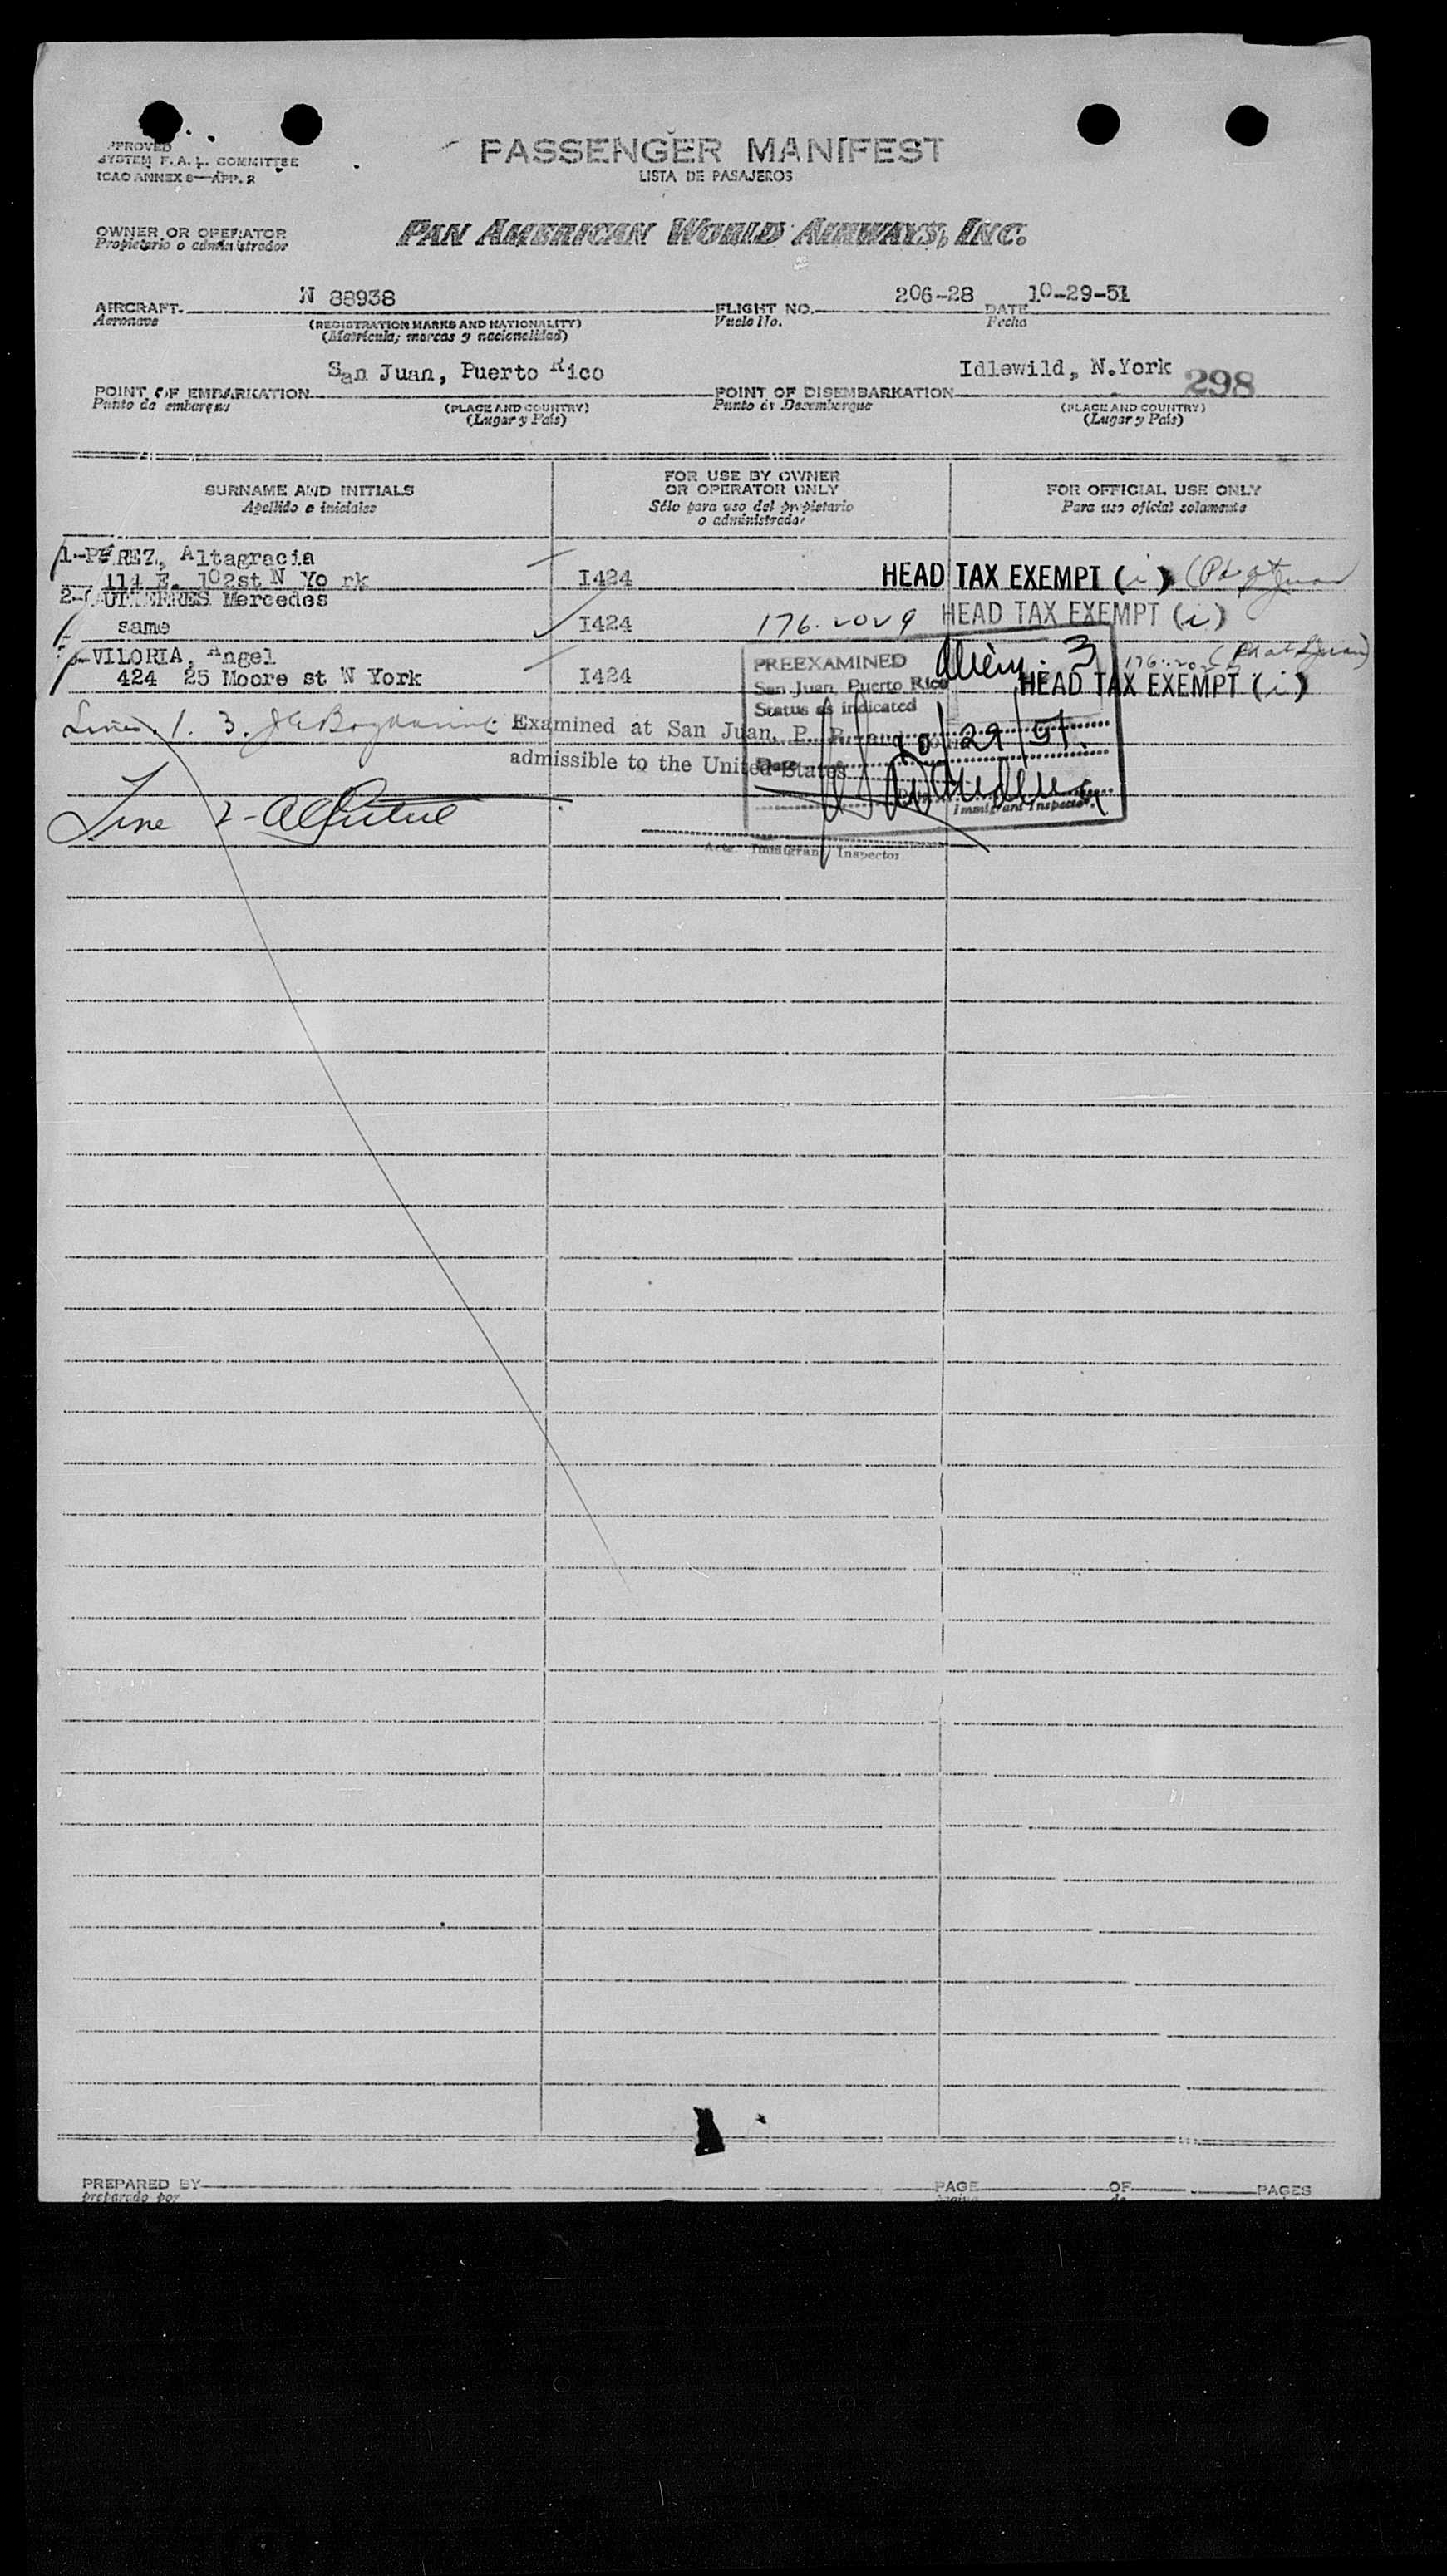 APPROVED
SYSTEM F. A. L. COMMITTEE
ICAO ANNEX 9—APP. 2
PASSENGER MANIFEST
LISTA DE PASAJEROS
OWNER OR OPERATOR
Propietario o administrador
PAN AMERICAN WORLD AIRWAYS, INC.
AIRCRAFT N 88938 FLIGHT NO. 206-28 DATE 10-29-51
Aeronave (REGISTRATION MARKS AND NATIONALITY) Vuelo No. Fecha
(Matrícula; marcas y nacionalidad)
POINT OF EMBARKATION San Juan, Puerto Rico POINT OF DISEMBARKATION Idlewild, N.York 298
Punto de embarque (PLACE AND COUNTRY) Punto de Desembarque (PLACE AND COUNTRY)
(Lugar y País) (Lugar y País)
SURNAME AND INITIALS
Apellido e iniciales
FOR USE BY OWNER
OR OPERATOR ONLY
Sólo para uso del propietario
o administrador
FOR OFFICIAL USE ONLY
Para uso oficial solamente
1-PEREZ, Altagracia
114 E. 102st N Yo rk I424 HEAD TAX EXEMPT (i)
2-GUTIERRES Mercedes
same I424 176.2029 HEAD TAX EXEMPT (i)
3-VILORIA, Angel
424 25 Moore st N York I424 HEAD TAX EXEMPT (i)
PREEXAMINED
San Juan, Puerto Rico
Status as indicated
Date 10/29/51
Immigrant Inspector
Lines 1. 3.
Examined at San Juan, P. R. and found
admissible to the United States
Line 2-
Actg. Immigrant Inspector
PREPARED BY PAGE OF PAGES
preparado por página de